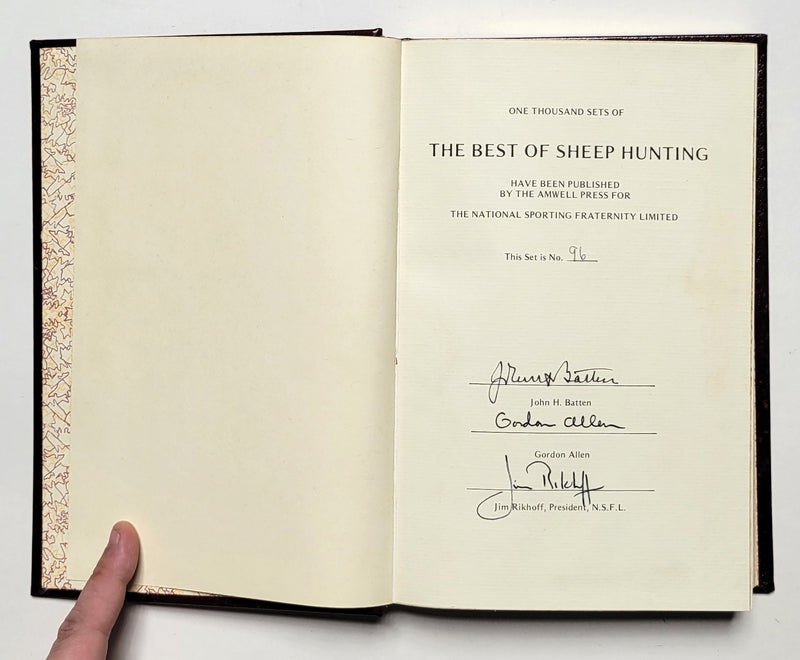 ONE THOUSAND SETS OF
THE BEST OF SHEEP HUNTING
HAVE BEEN PUBLISHED
BY THE AMWELL PRESS FOR
THE NATIONAL SPORTING FRATERNITY LIMITED
This Set is No. 96
John H Batten
John H. Batten
Gordon Allen
Gordon Allen
Jim Rikhoff
Jim Rikhoff, President, N.S.F.L.